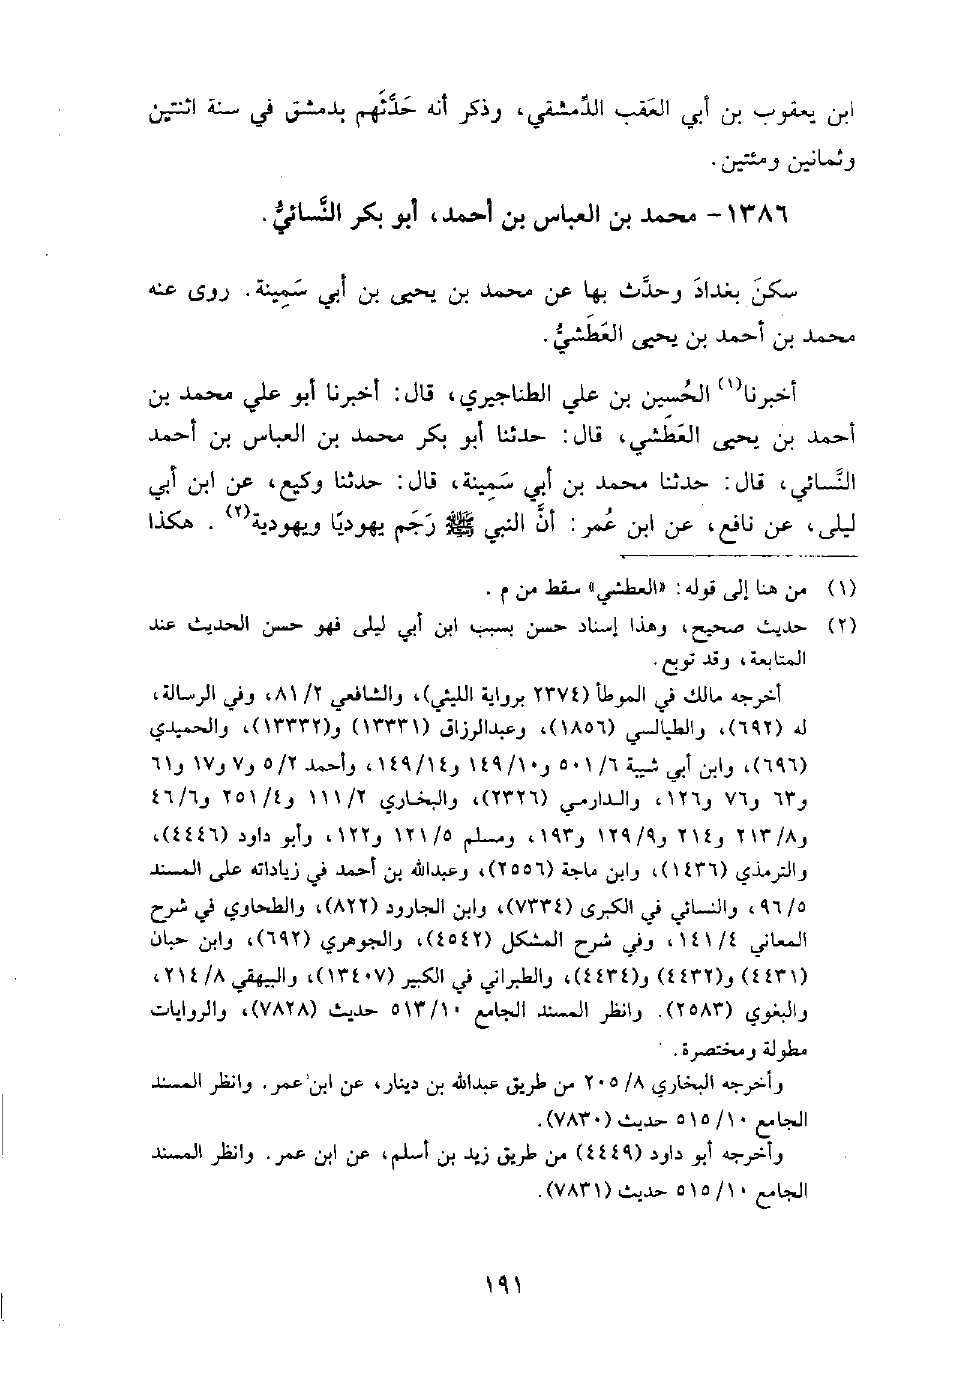 ابن يعقوب بن أبي العَقب الدِّمشقي، وذكر أنه حَدَّثَهم بدمشق في سنة اثنتين
وثمانين ومئتين.
١٣٨٦- محمد بن العباس بن أحمد، أبو بكر النَّسائيُّ.
سكنَ بغدادَ وحدَّث بها عن محمد بن يحيى بن أبي سَمِينة. روى عنه
محمد بن أحمد بن يحيى العَطَشيُّ.
أخبرنا(١) الحُسين بن علي الطناجيري، قال: أخبرنا أبو علي محمد بن
أحمد بن يحيى العَطَشي، قال: حدثنا أبو بكر محمد بن العباس بن أحمد
النَّسائي، قال: حدثنا محمد بن أبي سَمِينة، قال: حدثنا وكيع، عن ابن أبي
ليلى، عن نافع، عن ابن عُمر: أنَّ النبي ﷺ رَجَم يهوديًا ويهودية(٢). هكذا
(١) من هنا إلى قوله: «العطشي» سقط من م.
(٢) حديث صحيح، وهذا إسناد حسن بسبب ابن أبي ليلى فهو حسن الحديث عند
المتابعة، وقد توبع.
أخرجه مالك في الموطأ (٢٣٧٤ برواية الليثي)، والشافعي ٢/ ٨١، وفي الرسالة،
له (٦٩٢)، والطيالسي (١٨٥٦)، وعبدالرزاق (١٣٣٣١) و(١٣٣٣٢)، والحميدي
(٦٩٦)، وابن أبي شيبة ٦/ ٥٠١ و١٠/ ١٤٩ و١٤/ ١٤٩، وأحمد ٢/ ٥ و٧ و١٧ و٦١
و٦٣ و٧٦ و١٢٦، والدارمي (٢٣٢٦)، والبخاري ٢/ ١١١ و٤/ ٢٥١ و٦/ ٤٦
و٨/ ٢١٣ و٢١٤ و٩/ ١٢٩ و١٩٣، ومسلم ٥/ ١٢١ و١٢٢، وأبو داود (٤٤٤٦)،
والترمذي (١٤٣٦)، وابن ماجة (٢٥٥٦)، وعبدالله بن أحمد في زياداته على المسند
٥/ ٩٦، والنسائي في الكبرى (٧٣٣٤)، وابن الجارود (٨٢٢)، والطحاوي في شرح
المعاني ٤/ ١٤١، وفي شرح المشكل (٤٥٤٢)، والجوهري (٦٩٢)، وابن حبان
(٤٤٣١) و(٤٤٣٢) و(٤٤٣٤)، والطبراني في الكبير (١٣٤٠٧)، والبيهقي ٨/ ٢١٤،
والبغوي (٢٥٨٣). وانظر المسند الجامع ١٠/ ٥١٣ حديث (٧٨٢٨)، والروايات
مطولة ومختصرة.
وأخرجه البخاري ٨/ ٢٠٥ من طريق عبدالله بن دينار، عن ابن عمر. وانظر المسند
الجامع ١٠/ ٥١٥ حديث (٧٨٣٠).
وأخرجه أبو داود (٤٤٤٩) من طريق زيد بن أسلم، عن ابن عمر. وانظر المسند
الجامع ١٠/ ٥١٥ حديث (٧٨٣١).
١٩١